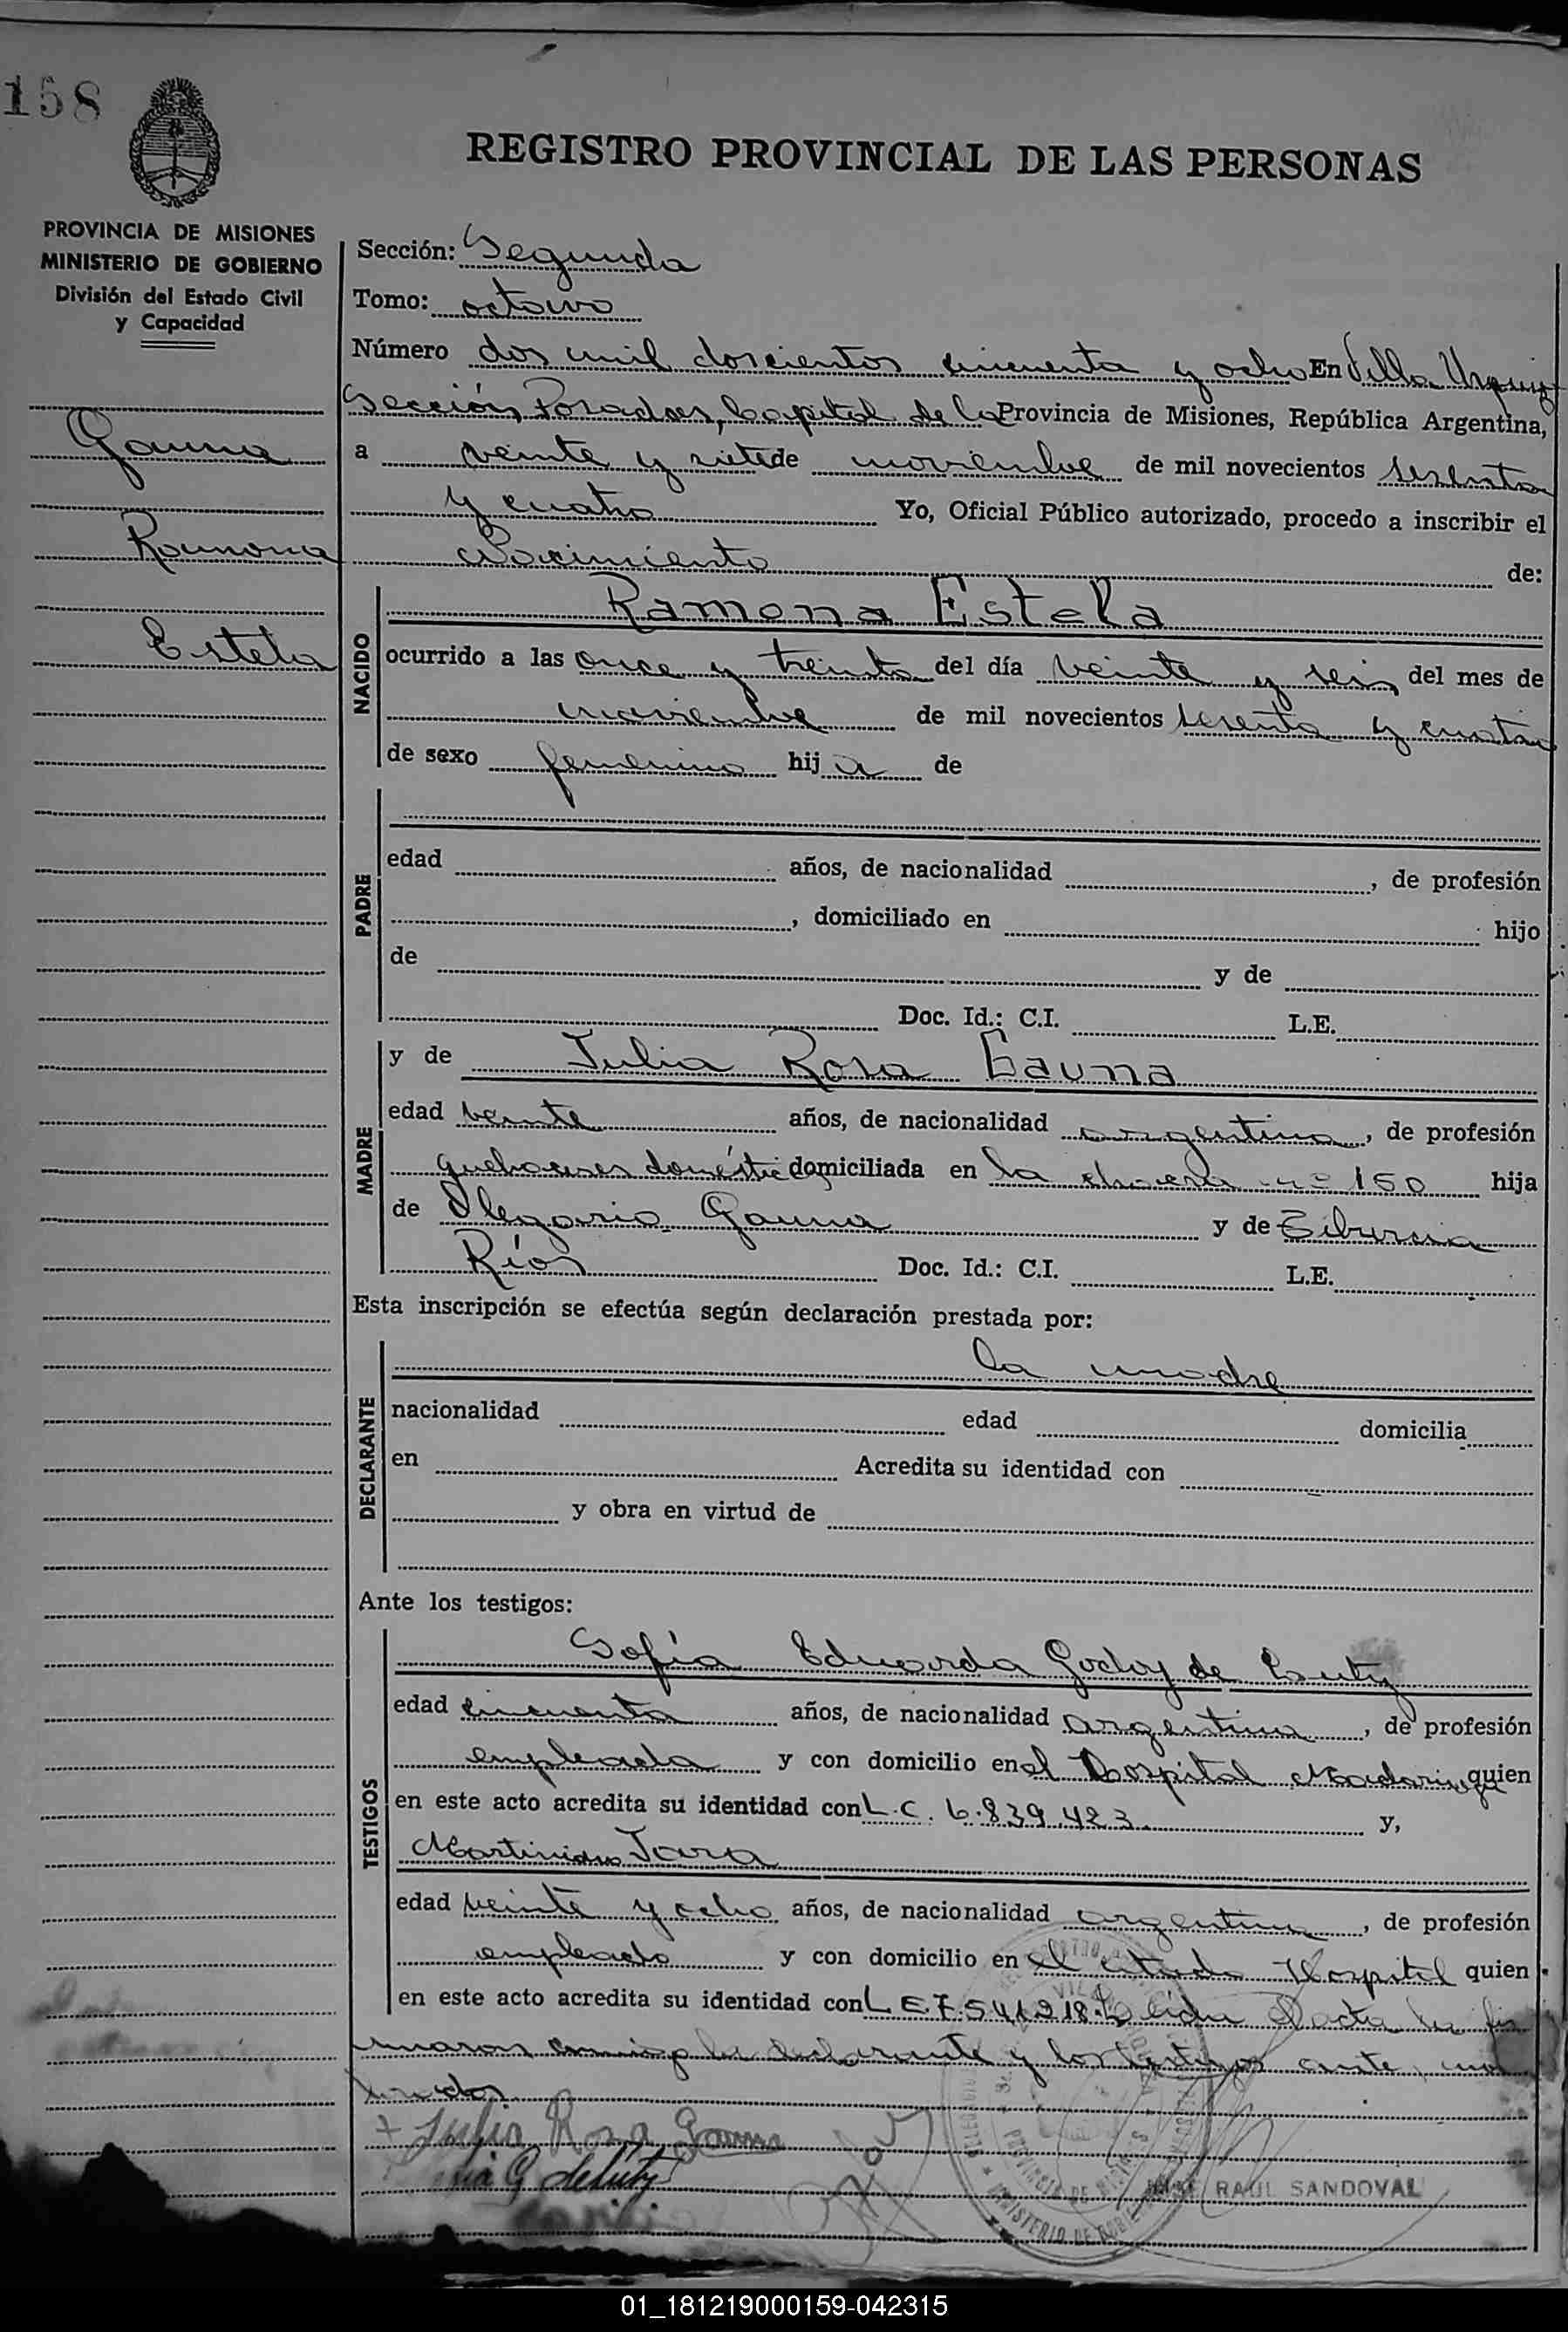 158
REGISTRO PROVINCIAL DE LAS PERSONAS
PROVINCIA DE MISIONES
MINISTERIO DE GOBIERNO
División del Estado Civil
y Capacidad
Gauna
Ramona
Estela
Sección: Segunda
Tomo: octavo
Número dos mil doscientos cincuenta y ocho En Villa Urquiza
Sección, Posadas, Capital de la Provincia de Misiones, República Argentina,
a veinte y siete de noviembre de mil novecientos sesenta
y cuatro Yo, Oficial Público autorizado, procedo a inscribir el
Nacimiento de:
NACIDO
Ramona Estela
ocurrido a las once y treinta del día veinte y seis del mes de
noviembre de mil novecientos sesenta y cuatro
de sexo femenino hij a de
PADRE
edad años, de nacionalidad , de profesión
, domiciliado en hijo
de y de
Doc. Id.: C.I. L.E.
MADRE
y de Julia Rosa Gauna
edad veinte años, de nacionalidad argentina, de profesión
quehaceres domésticos domiciliada en la chacra nº 150 hija
de Olegario Gauna y de Tiburcia
Ríos Doc. Id.: C.I. L.E.
Esta inscripción se efectúa según declaración prestada por:
DECLARANTE
la madre
nacionalidad edad domicilia
en Acredita su identidad con
y obra en virtud de
Ante los testigos:
TESTIGOS
Sofía Eduarda Godoy de
edad cincuenta años, de nacionalidad argentina, de profesión
empleada y con domicilio en el Hospital Madariaga quien
en este acto acredita su identidad con L.C. 6.839.423. y,
Martiniano Jara
edad veinte y ocho años, de nacionalidad argentina, de profesión
empleado y con domicilio en el citado Hospital quien
en este acto acredita su identidad con L E.7.541.218. leída el acta la fir
maron conmigo la declarante y los testigos ante
+ Julia Rosa Gauna
G de
JOSE RAUL SANDOVAL
PROVINCIA DE MISIONES
MINISTERIO DE GOBIERNO
01_181219000159-042315